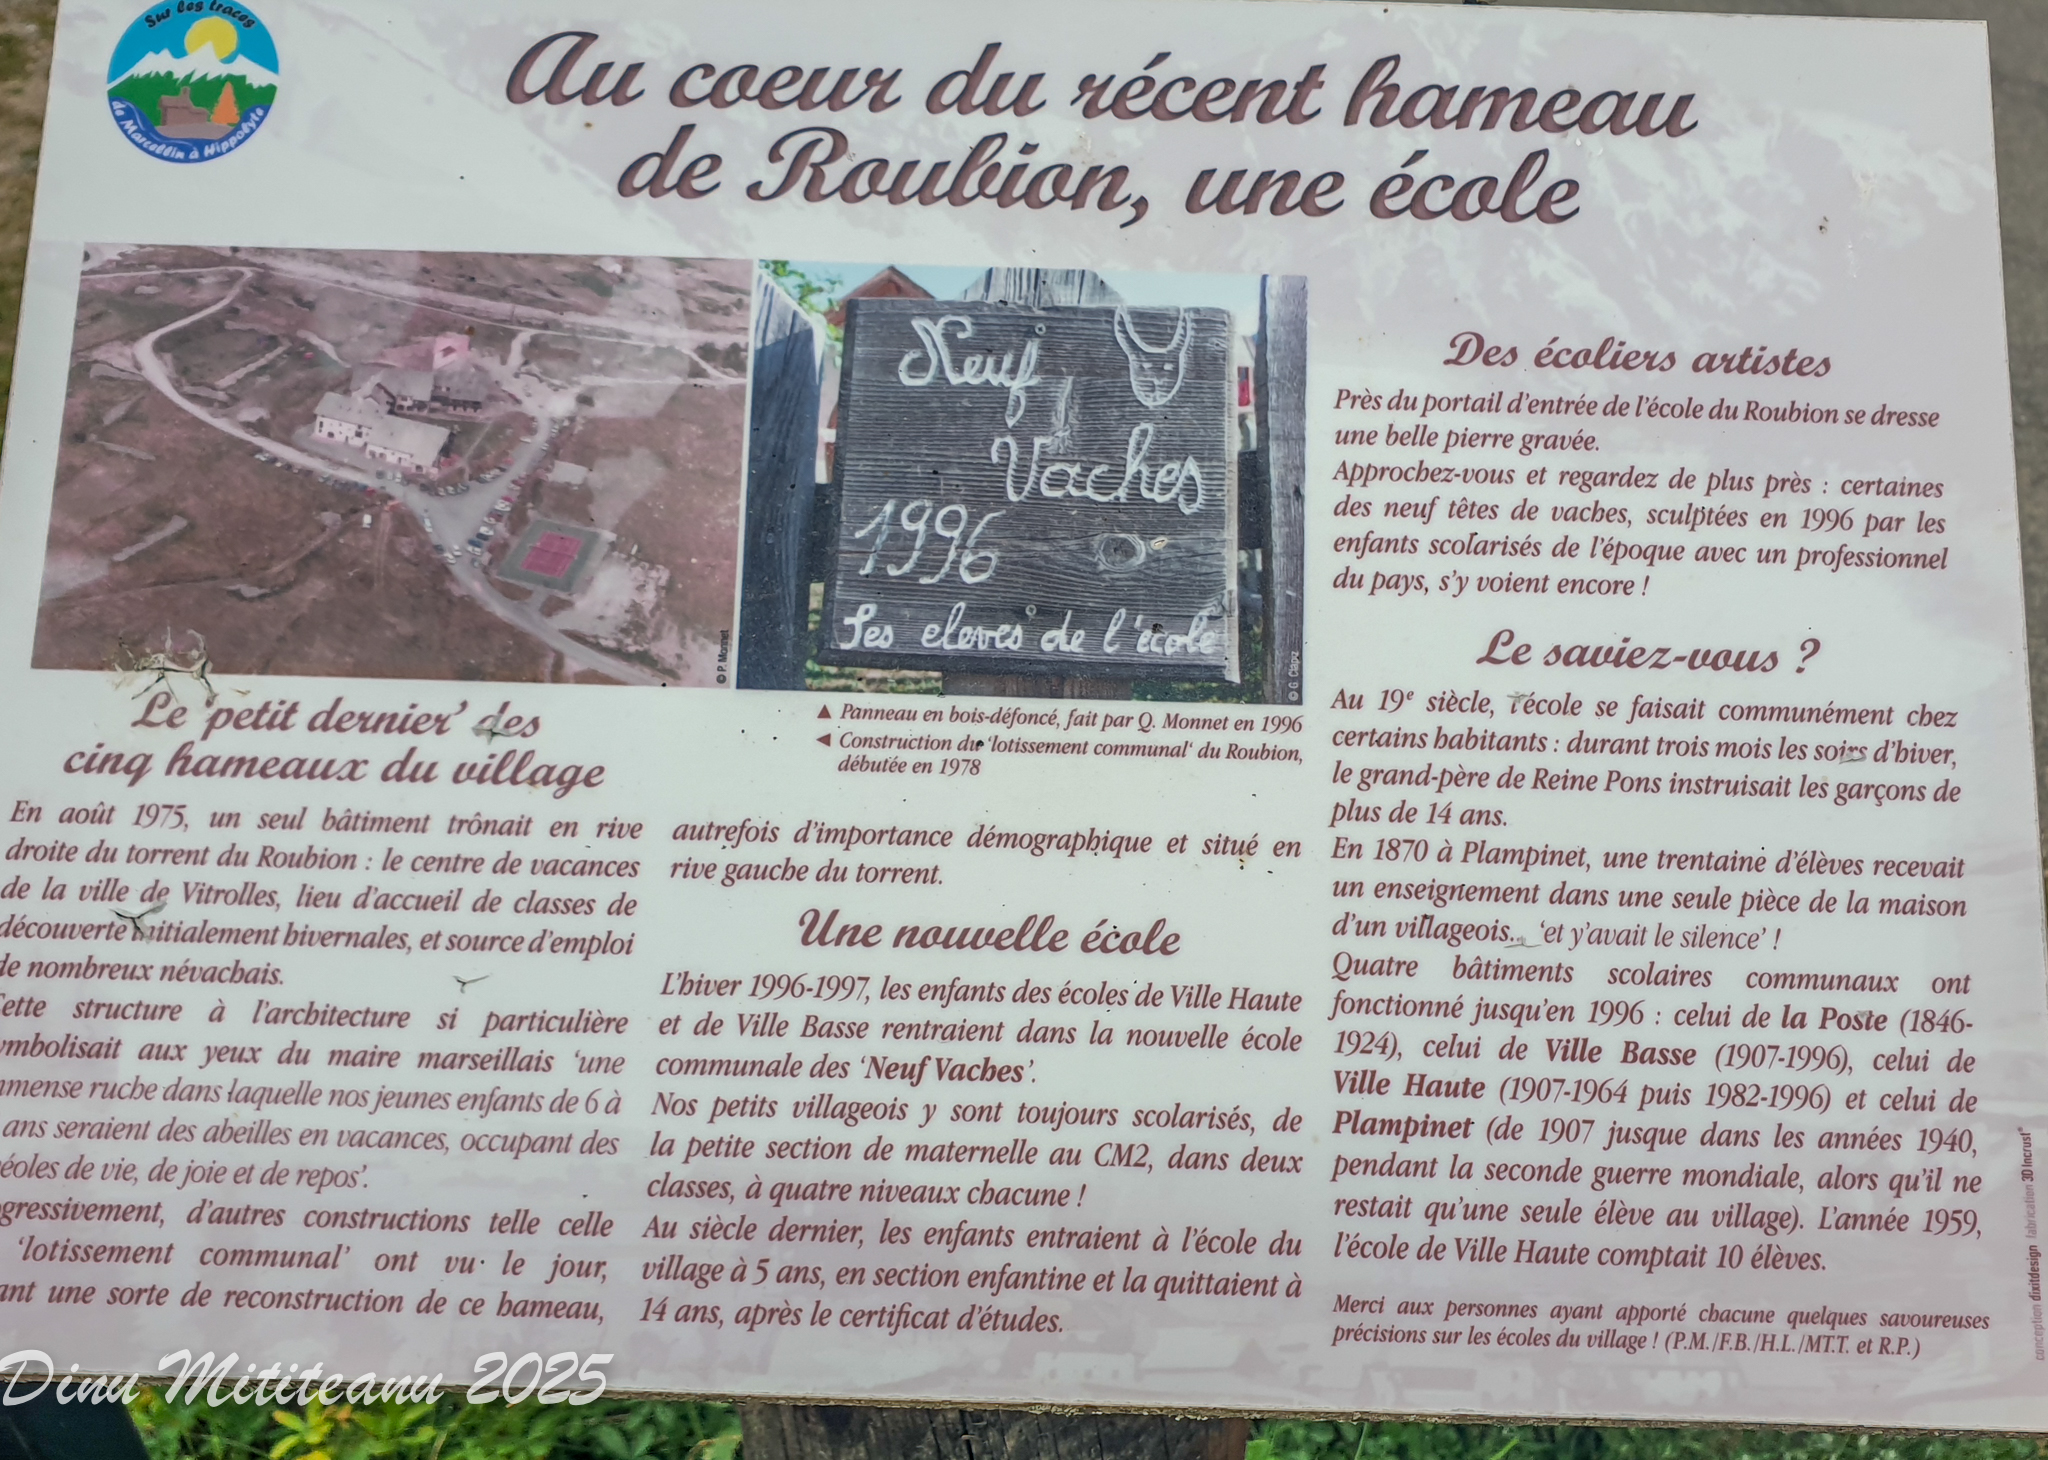 Sur les traces
de Marcellin à Hippolyte
Au coeur du récent hameau
de Roubion, une école
© P. Monnet
Neuf
Vaches
1996
Les eleves de l'école
© G. Clapz
▲ Panneau en bois-défoncé, fait par Q. Monnet en 1996
◄ Construction du 'lotissement communal' du Roubion,
débutée en 1978
Le 'petit dernier' des
cinq hameaux du village
En août 1975, un seul bâtiment trônait en rive
droite du torrent du Roubion : le centre de vacances
de la ville de Vitrolles, lieu d'accueil de classes de
découverte initialement hivernales, et source d'emploi
de nombreux névachais.
ette structure à l'architecture si particulière
ymbolisait aux yeux du maire marseillais 'une
mmense ruche dans laquelle nos jeunes enfants de 6 à
ans seraient des abeilles en vacances, occupant des
éoles de vie, de joie et de repos'.
gressivement, d'autres constructions telle celle
'lotissement communal' ont vu le jour,
ant une sorte de reconstruction de ce hameau,
autrefois d'importance démographique et situé en
rive gauche du torrent.
Une nouvelle école
L'hiver 1996-1997, les enfants des écoles de Ville Haute
et de Ville Basse rentraient dans la nouvelle école
communale des 'Neuf Vaches'.
Nos petits villageois y sont toujours scolarisés, de
la petite section de maternelle au CM2, dans deux
classes, à quatre niveaux chacune !
Au siècle dernier, les enfants entraient à l'école du
village à 5 ans, en section enfantine et la quittaient à
14 ans, après le certificat d'études.
Des écoliers artistes
Près du portail d'entrée de l'école du Roubion se dresse
une belle pierre gravée.
Approchez-vous et regardez de plus près : certaines
des neuf têtes de vaches, sculptées en 1996 par les
enfants scolarisés de l'époque avec un professionnel
du pays, s'y voient encore !
Le saviez-vous ?
Au 19e siècle, l'école se faisait communément chez
certains habitants : durant trois mois les soirs d'hiver,
le grand-père de Reine Pons instruisait les garçons de
plus de 14 ans.
En 1870 à Plampinet, une trentaine d'élèves recevait
un enseignement dans une seule pièce de la maison
d'un villageois... 'et y'avait le silence' !
Quatre bâtiments scolaires communaux ont
fonctionné jusqu'en 1996 : celui de la Poste (1846-
1924), celui de Ville Basse (1907-1996), celui de
Ville Haute (1907-1964 puis 1982-1996) et celui de
Plampinet (de 1907 jusque dans les années 1940,
pendant la seconde guerre mondiale, alors qu'il ne
restait qu'une seule élève au village). L'année 1959,
l'école de Ville Haute comptait 10 élèves.
Merci aux personnes ayant apporté chacune quelques savoureuses
précisions sur les écoles du village ! (P.M./F.B./H.L./MT.T. et R.P.)
conception dixitdesign fabrication 3D Incrust®
Dinu Mititeanu 2025